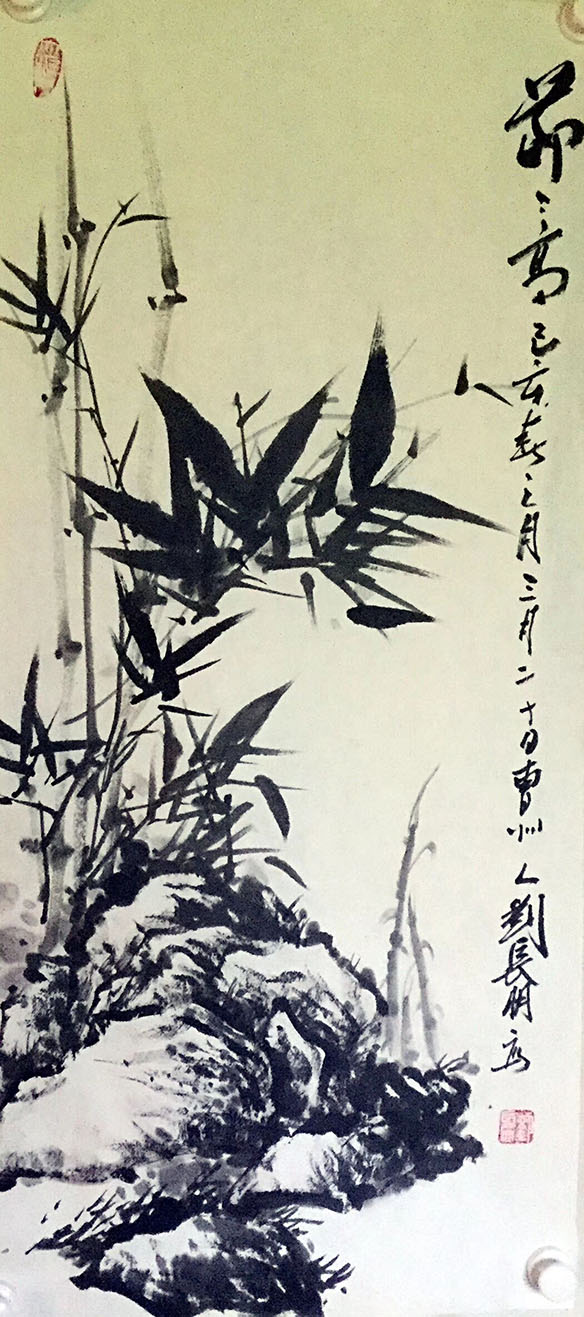 節々高 己亥春之月三月二十日曹州人劉長明写